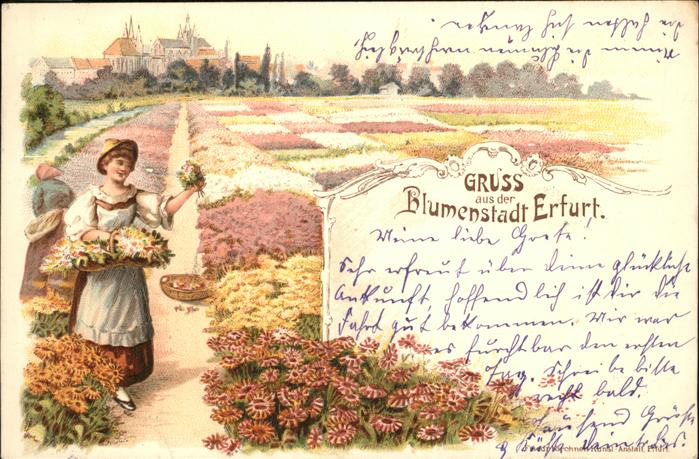 GRUSS
aus der
Blumenstadt Erfurt.
Meine liebe Grete!
Sehr erfreut über deine glückliche
Ankunft hoffendlich ist dir die
Fahrt gut bekommen. Mir war
es furchtbar den ersten
Tag. Schreibe bitte
recht bald.
Tausend Grüße
Küsse
Kunst-Anstalt, Erfurt.
Nimm die
die